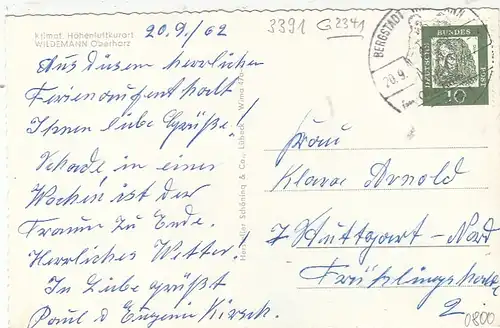 klimat. Höhenluftkurort
WILDEMANN Oberharz
20.9./62
3391 G2341
Aus diesem herrlichen
Ferienaufenthalt
Ihnen liebe Grüße!
Schade in einer
Wochen ist der
Traum zu Ende.
Herrliches Wetter!
In Liebe grüßt
Paul & Eugenie Kirsch.
Hersteller Schöning & Co., Lübeck
BERGSTADT
20.9.
DEUTSCHE BUNDESPOST
10
Frau
Klara Arnold
7 Stuttgart-Nord
2
0800